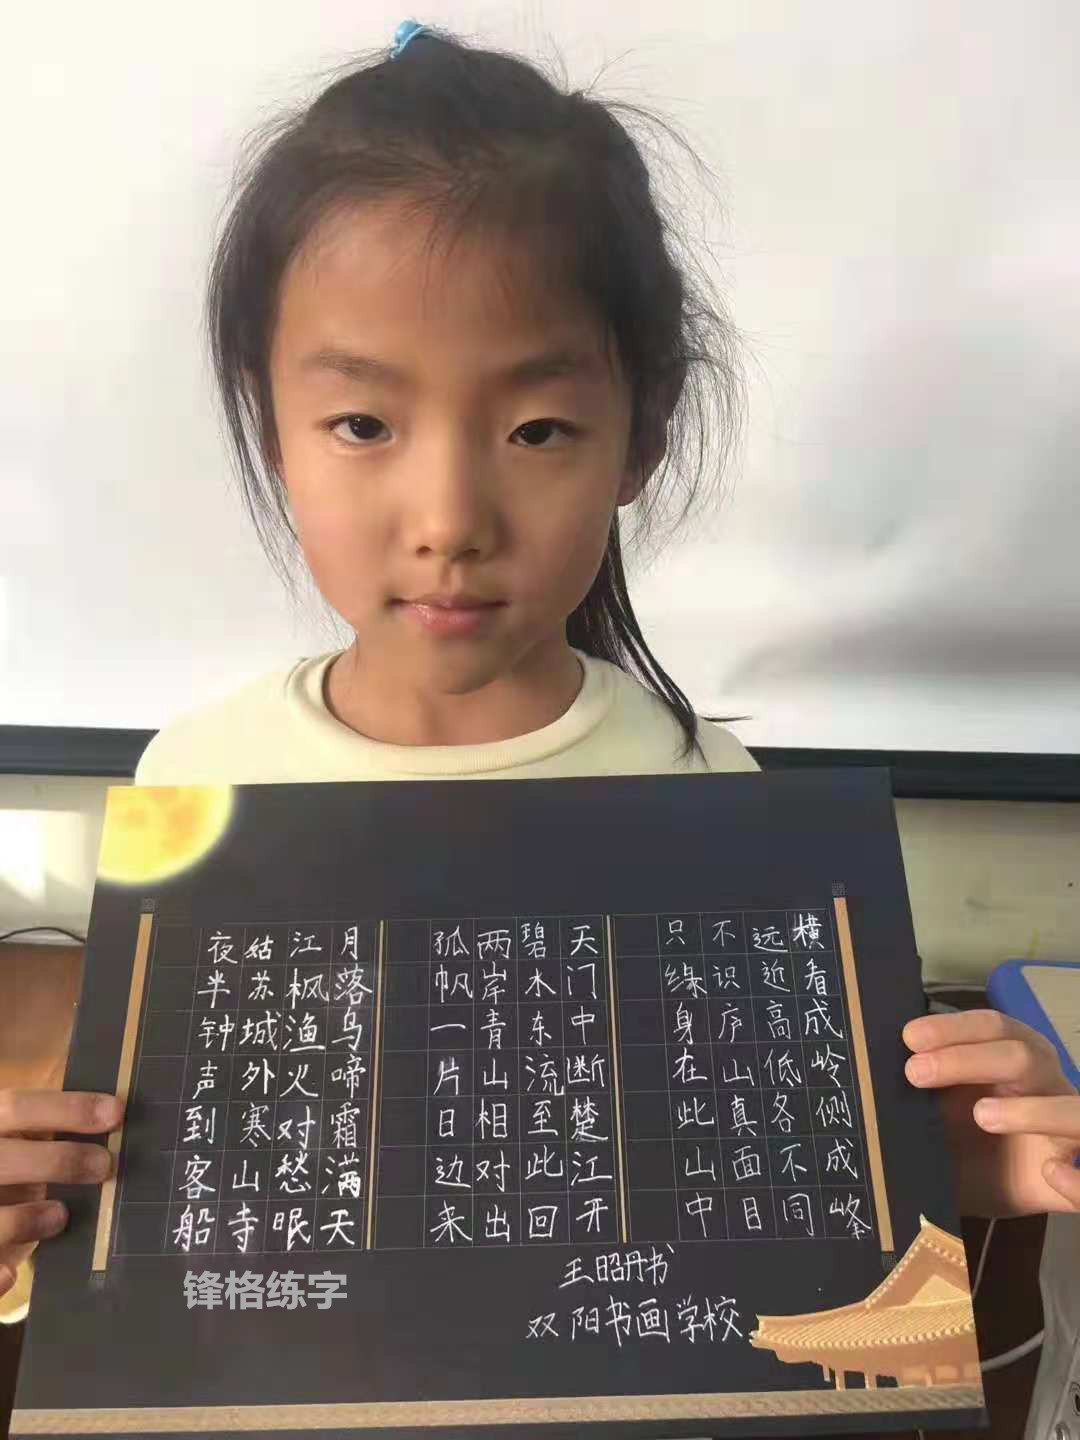 横看成岭侧成峰
远近高低各不同
不识庐山真面目
只缘身在此山中
天门中断楚江开
碧水东流至此回
两岸青山相对出
孤帆一片日边来
月落乌啼霜满天
江枫渔火对愁眠
姑苏城外寒山寺
夜半钟声到客船
王昭丹书
双阳书画学校
锋格练字